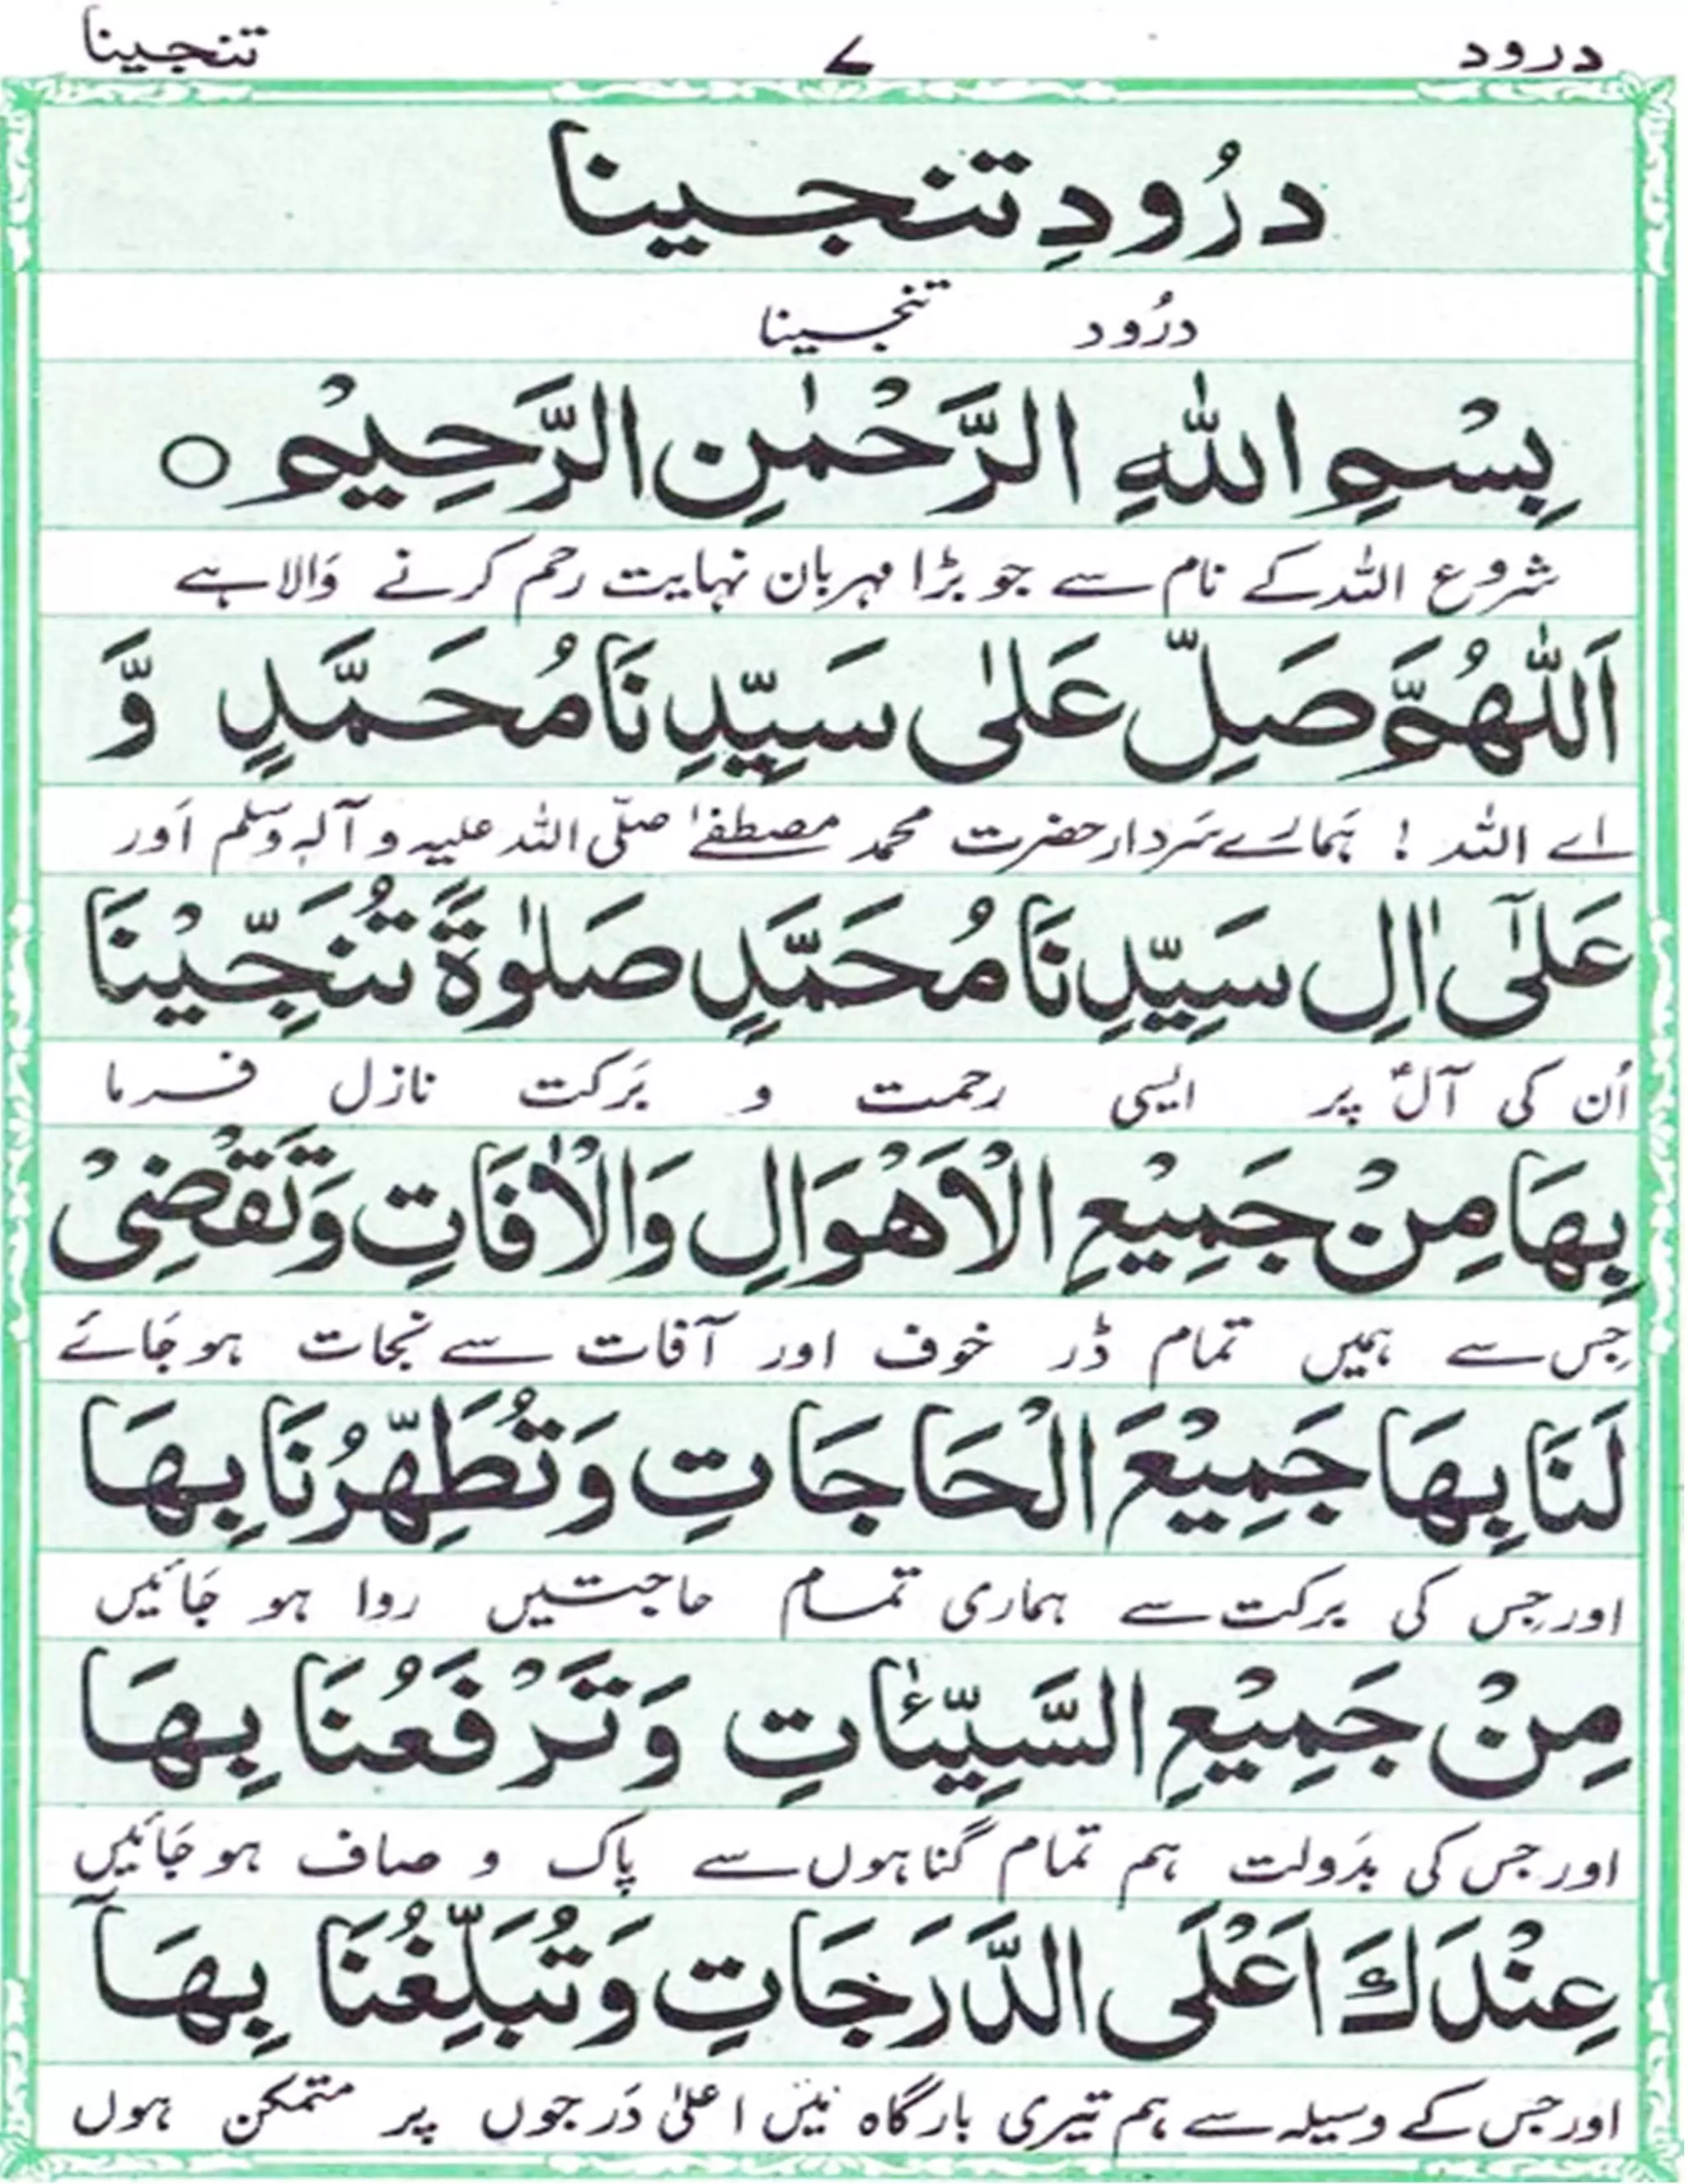 درود ۷ تنجینا
درُودِ تنجینا
درُود تنجینا
بِسْمِ اللّٰهِ الرَّحْمٰنِ الرَّحِيْمِ ○
شروع اللہ کے نام سے جو بڑا مہربان نہایت رحم کرنے وَالا ہے
اَللّٰهُمَّ صَلِّ عَلٰى سَيِّدِنَا مُحَمَّدٍ وَّ
اے اللہ ! ہَمارے سَردار حضرت محمد مصطفےٰ صلّی اللہ علیہ و آلہٖ وَسلم اَور
عَلٰٓى اٰلِ سَيِّدِنَا مُحَمَّدٍ صَلٰوةً تُنَجِّيْنَا
اُن کی آلؑ پر ایسی رحمت و بَرکت نازل فرما
بِهَا مِنْ جَمِيْعِ الْاَهْوَالِ وَالْاٰفَاتِ وَتَقْضِىْ
جِس سے ہمیں تمام ڈر خوف اور آفات سے نجات ہو جَائے
لَنَا بِهَا جَمِيْعَ الْحَاجَاتِ وَتُطَهِّرُنَا بِهَا
اور جِس کی برکت سے ہماری تمام حاجتیں روا ہو جَائیں
مِنْ جَمِيْعِ السَّيِّاٰتِ وَتَرْفَعُنَا بِهَا
اور جس کی بدَولت ہم تمام گناہوں سے پاک و صاف ہو جَائیں
عِنْدَكَ اَعْلَى الدَّرَجَاتِ وَتُبَلِّغُنَا بِهَآ
اور جس کے وسیلہ سے ہم تیری بارگاہ میں اعلیٰ دَرجوں پر متمکن ہوں